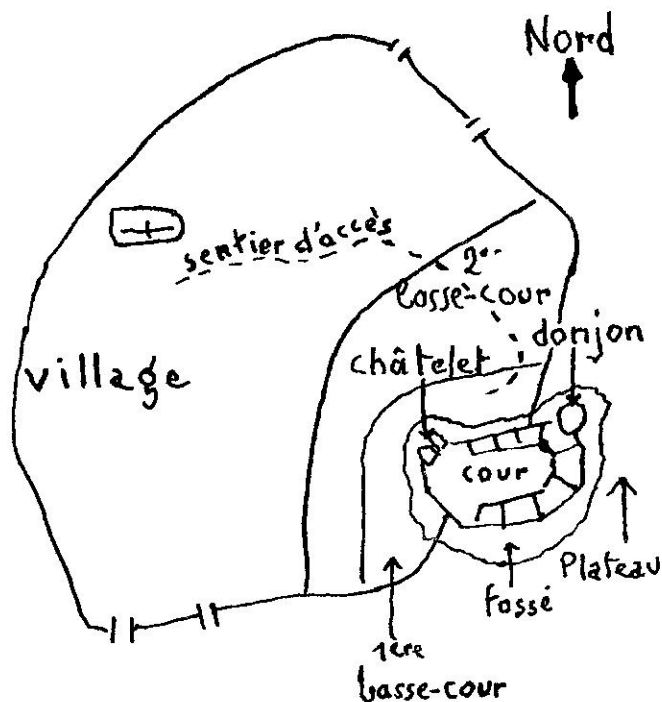 Nord
sentier d'accès
2e..
basse-cour
donjon
châtelet
village
cour
Plateau
Fossé
1ère
basse-cour